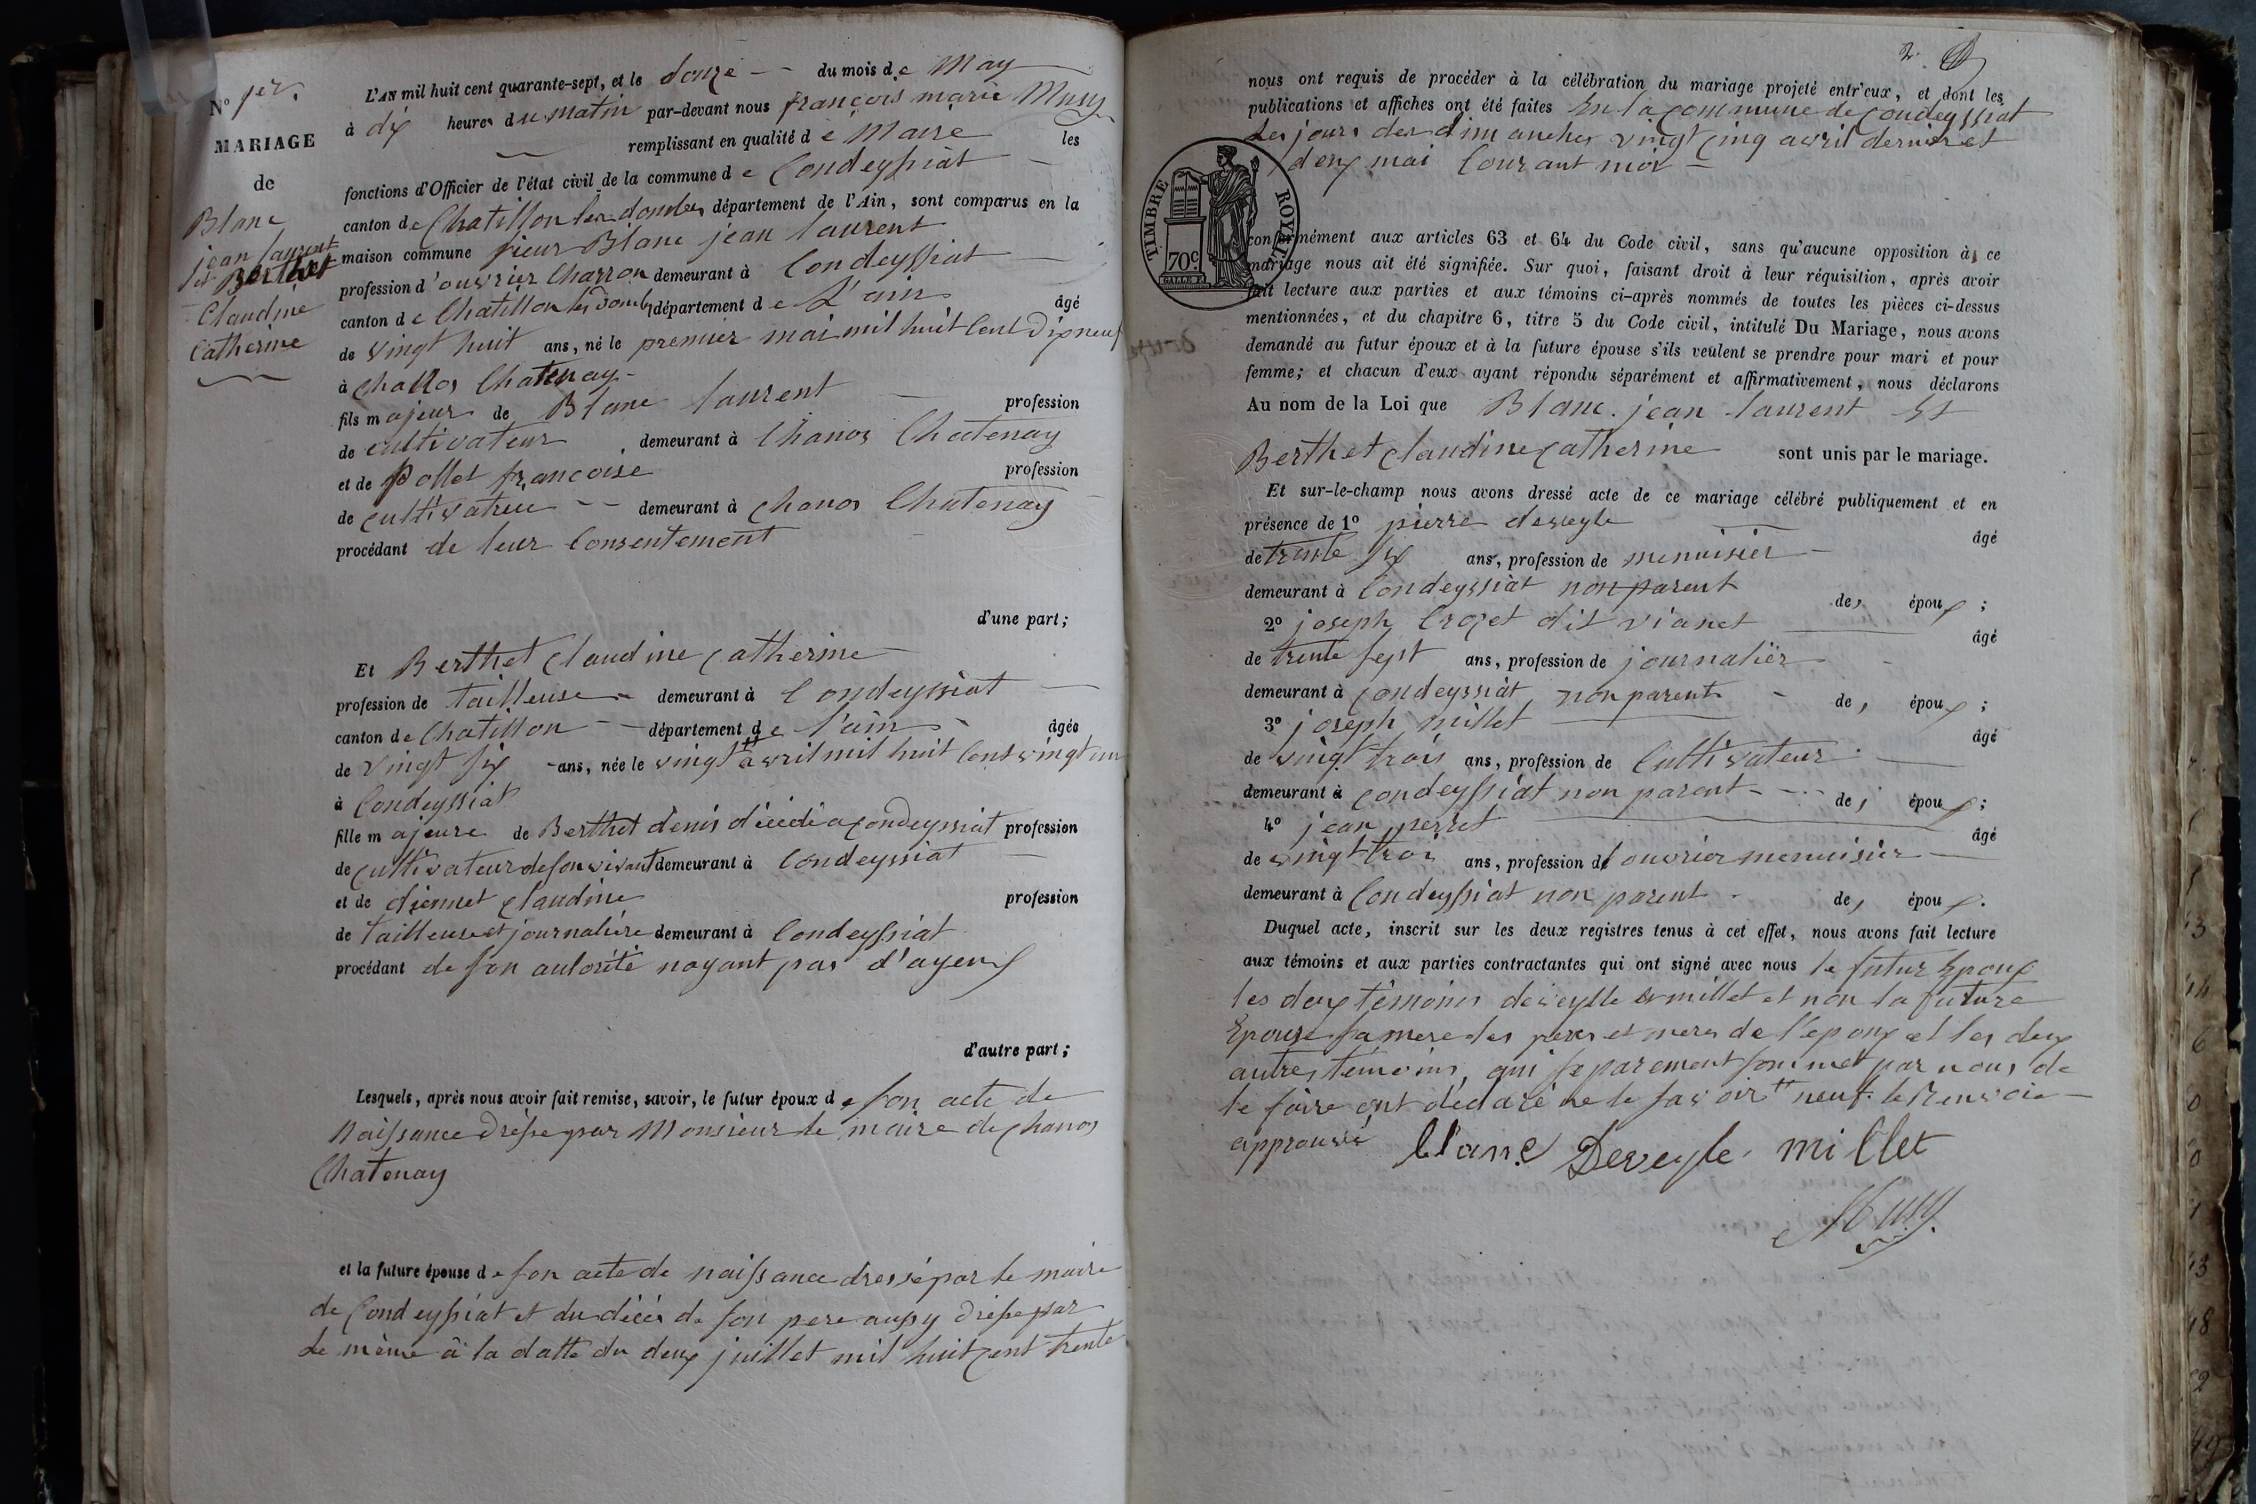 N° 1er.
MARIAGE
de
Blanc
jean laurent
et Berthet
Claudine
Catherine
L'AN mil huit cent quarante-sept, et le douze du mois de May
à dix heures du matin par-devant nous françois marie Musy
remplissant en qualité de Maire les
fonctions d'Officier de l'état civil de la commune de Condeyssiat
canton de Chatillon les dombes département de l'Ain, sont comparus en la
maison commune sieur Blanc jean laurent
profession d'ouvrier Charron demeurant à Condeyssiat
canton de Chatillon les Dombes département de L'ain âgé
de vingt huit ans, né le premier mai mil huit Cent Dixneuf
à Chanos Chatenay
fils majeur de Blanc laurent profession
de cultivateur demeurant à Chanos Chatenay
et de pollet françoise profession
de cultivatrice demeurant à Chanos Chatenay
procédant de leur Consentement
d'une part;
Et Berthet Claudine Catherine
profession de tailleuse demeurant à Condeyssiat
canton de Chatillon département de l'ain âgée
de vingt six ans, née le vingt tt avril mil huit Cent vingt un
à Condeyssiat
fille majeure de Berthet denis décédé a Condeyssiat profession
de cultivateur de son vivant demeurant à Condeyssiat
et de diennet Claudine profession
de tailleuse et journalière demeurant à Condeyssiat
procédant de son autorité nayant pas d'ayeux
d'autre part;
Lesquels, après nous avoir fait remise, savoir, le futur époux de son acte de
Naissance Dressé par Monsieur le maire de Chanos
Chatenay
et la future épouse de son acte de naissance dressé par le maire
de Condeyssiat et du décès de son pere aussy dressé par
le même à la datte du deux juillet mil huit cent trente
2.
nous ont requis de procéder à la célébration du mariage projeté entr'eux, et dont les
publications et affiches ont été faites En la commune de Condeyssiat
Les jours des dimanches vingt cinq avril dernier et
deux mai Courant mois
TIMBRE ROYAL
70c
conformément aux articles 63 et 64 du Code civil, sans qu'aucune opposition à ce
mariage nous ait été signifiée. Sur quoi, faisant droit à leur réquisition, après avoir
fait lecture aux parties et aux témoins ci-après nommés de toutes les pièces ci-dessus
mentionnées, et du chapitre 6, titre 5 du Code civil, intitulé Du Mariage, nous avons
demandé au futur époux et à la future épouse s'ils veulent se prendre pour mari et pour
femme; et chacun d'eux ayant répondu séparément et affirmativement, nous déclarons
Au nom de la Loi que Blanc jean laurent Et
Berthet Claudine Catherine sont unis par le mariage.
Et sur-le-champ nous avons dressé acte de ce mariage célébré publiquement et en
présence de 1° pierre deveyle âgé
de trente six ans, profession de menuisier
demeurant à Condeyssiat non parent des époux;
2° joseph Crozet dit vianet âgé
de trente sept ans, profession de journalier
demeurant à Condeyssiat non parent des époux;
3° joseph millet âgé
de vingt trois ans, profession de Cultivateur
demeurant à Condeyssiat non parent des époux;
4° jean perret âgé
de vingt trois ans, profession d'ouvrier menuisier
demeurant à Condeyssiat non parent des époux.
Duquel acte, inscrit sur les deux registres tenus à cet effet, nous avons fait lecture
aux témoins et aux parties contractantes qui ont signé avec nous le futur Epoux
les deux témoins deveylle et millet et non la future
Epouse sa mere les peres et meres de l'epoux et les deux
autres témoins, qui separement sommet par nous de
le faire ont déclaré ne le savoir tt neuf. le Renvoie
approuvé
blanc Deveyle millet
Musy